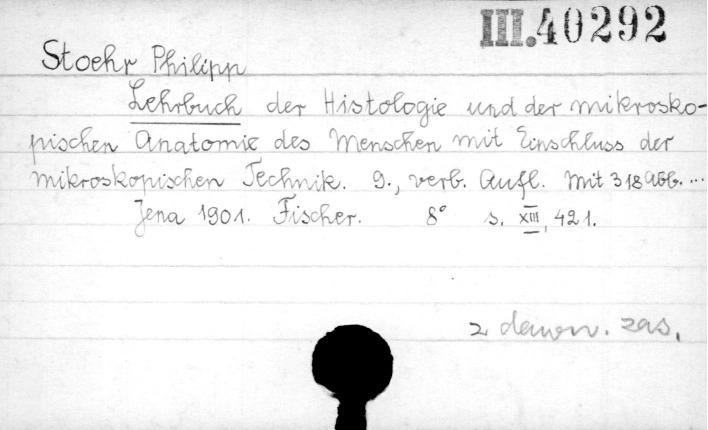 III.40292
Stoehr Philipp
Lehrbuch der Histologie und der mikrosko-
pischen Anatomie des Menschen mit Einschluss der
mikroskopischen Technik. 9., verb. Aufl. Mit 318 Abb. ...
Jena 1901. Fischer. 8° s. XIII, 421.
z dawn. zas.